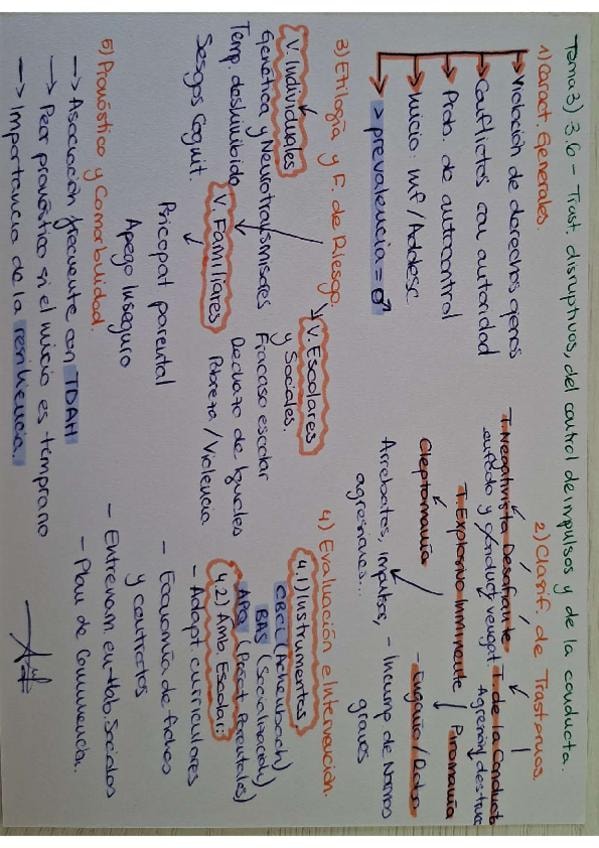 Tema 3) 3.6 - Trast. disruptivos, del control de impulsos y de la conducta.
1) Caract. Generales.
Violación de derechos ajenos
Conflictos con autoridad
Prob. de autocontrol
Inicio: inf/Adolesc.
> prevalencia = ♂
2) Clasif. de Trastornos.
T. Negativista Desafiante
enfado y conduct vengat.
T. de la Conducta
Agresión, destruc
- Engaño/Robo
- Incump de Normas
graves
T. Explosivo Inminente
Arrebatos, impulsos,
agresiones...
Cleptomanía / Piromanía
3) Etilogía y F. de Riesgo.
V. Individuales
Genética y Neurotransmisores
Temp. desinhibido
Sesgos Cognit.
V. Familiares
Psicopat parental
Apego Inseguro
V. Escolares
y Sociales.
Fracaso escolar
Rechazo de Iguales
Pobreza/Violencia
4) Evaluación e Intervención.
4.1) Instrumentos.
CBCL (Achenbach)
BAS (Socialización)
APQ (Pract. Parentales)
4.2) Amb. Escolar:
- Adapt. curriculares
- Economía de fichas
y contratos
- Entrenam. en Hab. Sociales
- Plan de Convivencia.
5) Pronóstico y Comorbilidad.
→ Asociación frecuente con TDAH
→ Peor pronóstico si el inicio es temprano
→ Importancia de la resiliencia.